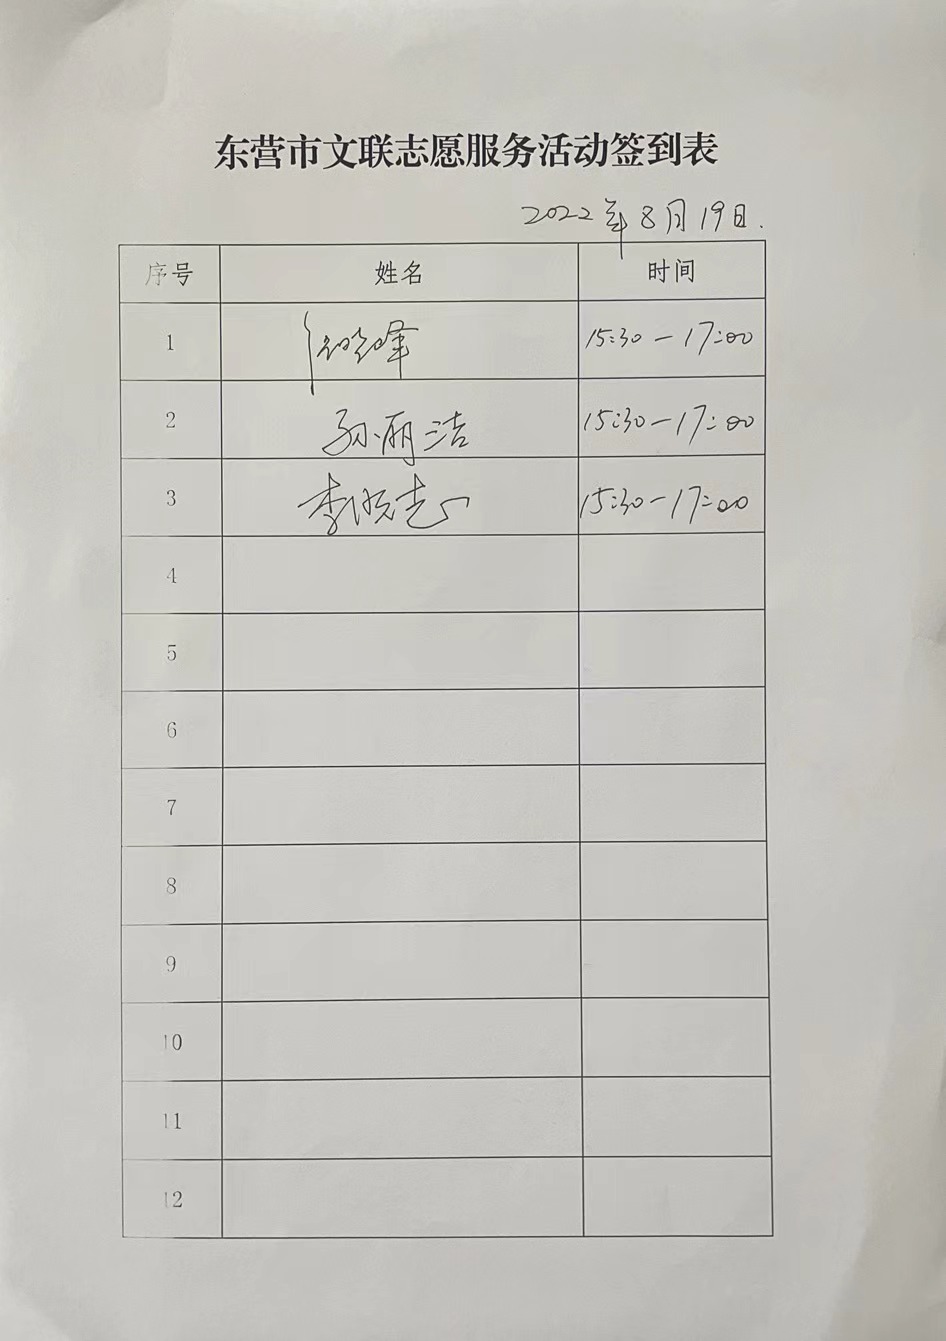 东营市文联志愿服务活动签到表
2022年8月19日.
序号 姓名 时间
1 15:30-17:00
2 孙丽洁 15:30-17:00
3 李晓志 15:30-17:00
4
5
6
7
8
9
10
11
12